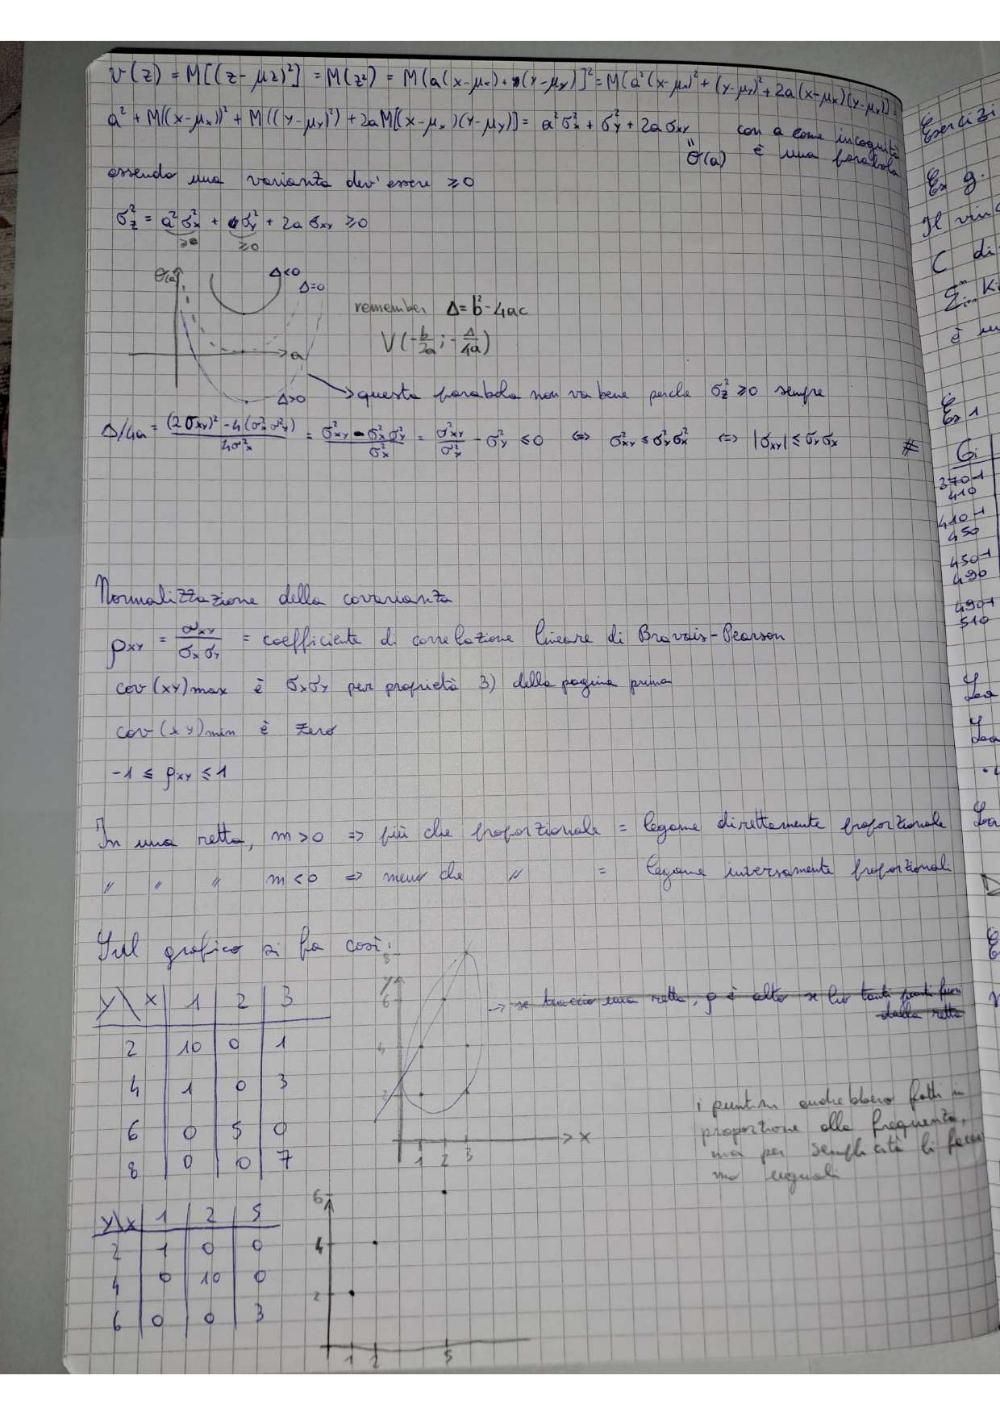 v(z) = M[(z-μz)²] = M(z²) = M(a(x-μx)+(y-μy)]² = M[a²(x-μx)²+(y-μy)²+2a(x-μx)(y-μy)] =
a² + M((x-μx))² + M((y-μy)²) + 2aM[(x-μx)(y-μy)] = a²σ²x + σ²y + 2a σxy con a come incognita
" θ(a) è una parabola
essendo una varianza dev' essere ≥0
σ²z = a²σ²x + σ²y + 2a σxy ≥0
≥0 ≥0
θ(a) Δ<0
Δ=0
remember Δ=b²-4ac
a V(-b/2a ; -Δ/4a)
Δ>0 questa parabola non va bene perché σ²z ≥0 sempre
Δ/4a = (2σxy)²-4(σ²x σ²y)/4σ²x = σ²xy-σ²xσ²y/σ²x = σ²xy/σ²x - σ²y ≤0 <=> σ²xy ≤ σ²yσ²x <=> |σxy| ≤ σyσx #
Normalizzazione della covarianza
ρxy = σxy/σxσy = coefficiente di correlazione lineare di Bravais-Pearson
cov(xy)max è σxσy per proprietà 3) della pagina prima
cov(xy)min è zero
-1 ≤ ρxy ≤ 1
In una retta, m>0 => più che proporzionale = legame direttamente proporzionale
" " " m<0 => meno che " = legame inversamente proporzionali
Sul grafico si fa così:
Y\X 1 2 3
2 10 0 1
4 1 0 3
6 0 5 0
8 0 0 7
8
Y
6
4
2
1 2 3 X
→ se traccio una retta, ρ è alto se ho tanti punti fuori
dalla retta
i puntini andrebbero fatti in
proporzione alla frequenza,
ma per semplicità li facc
mo uguali
Y\X 1 2 5
2 1 0 0
4 0 10 0
6 0 0 3
6
4
2
1 2 5
Esercizi
Ex g.
Il vinc
C di
è un
Ex 1
Ci
370-|
410
410-|
450
450-|
490
490-|
510